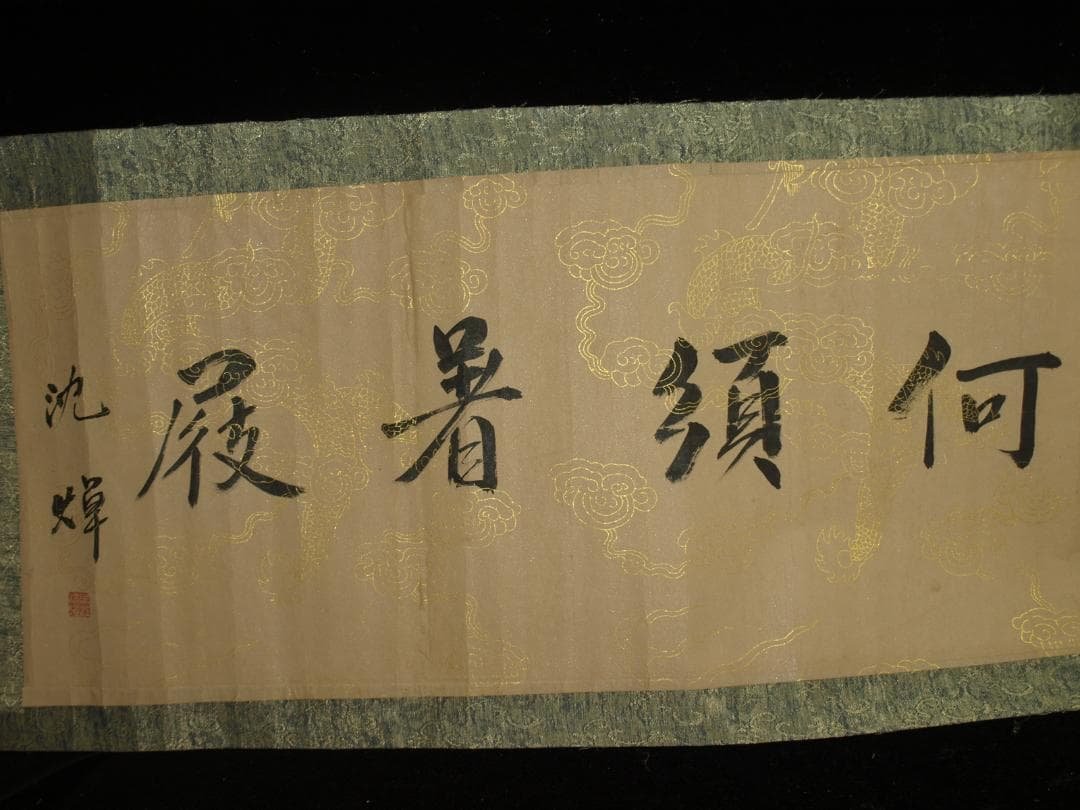 何須著屐
沈焯